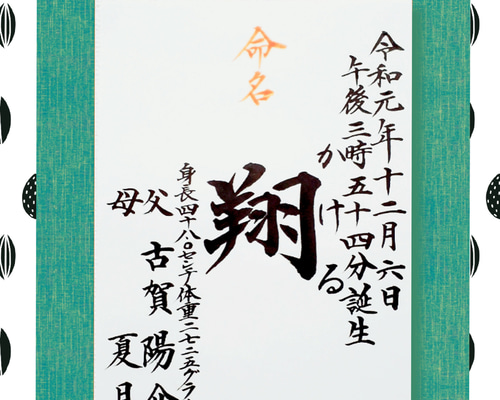 命名
令和元年十二月六日
午後三時五十四分誕生
かける
翔
身長四十八・〇センチ体重二七二五グラ
父 古賀陽
母 夏